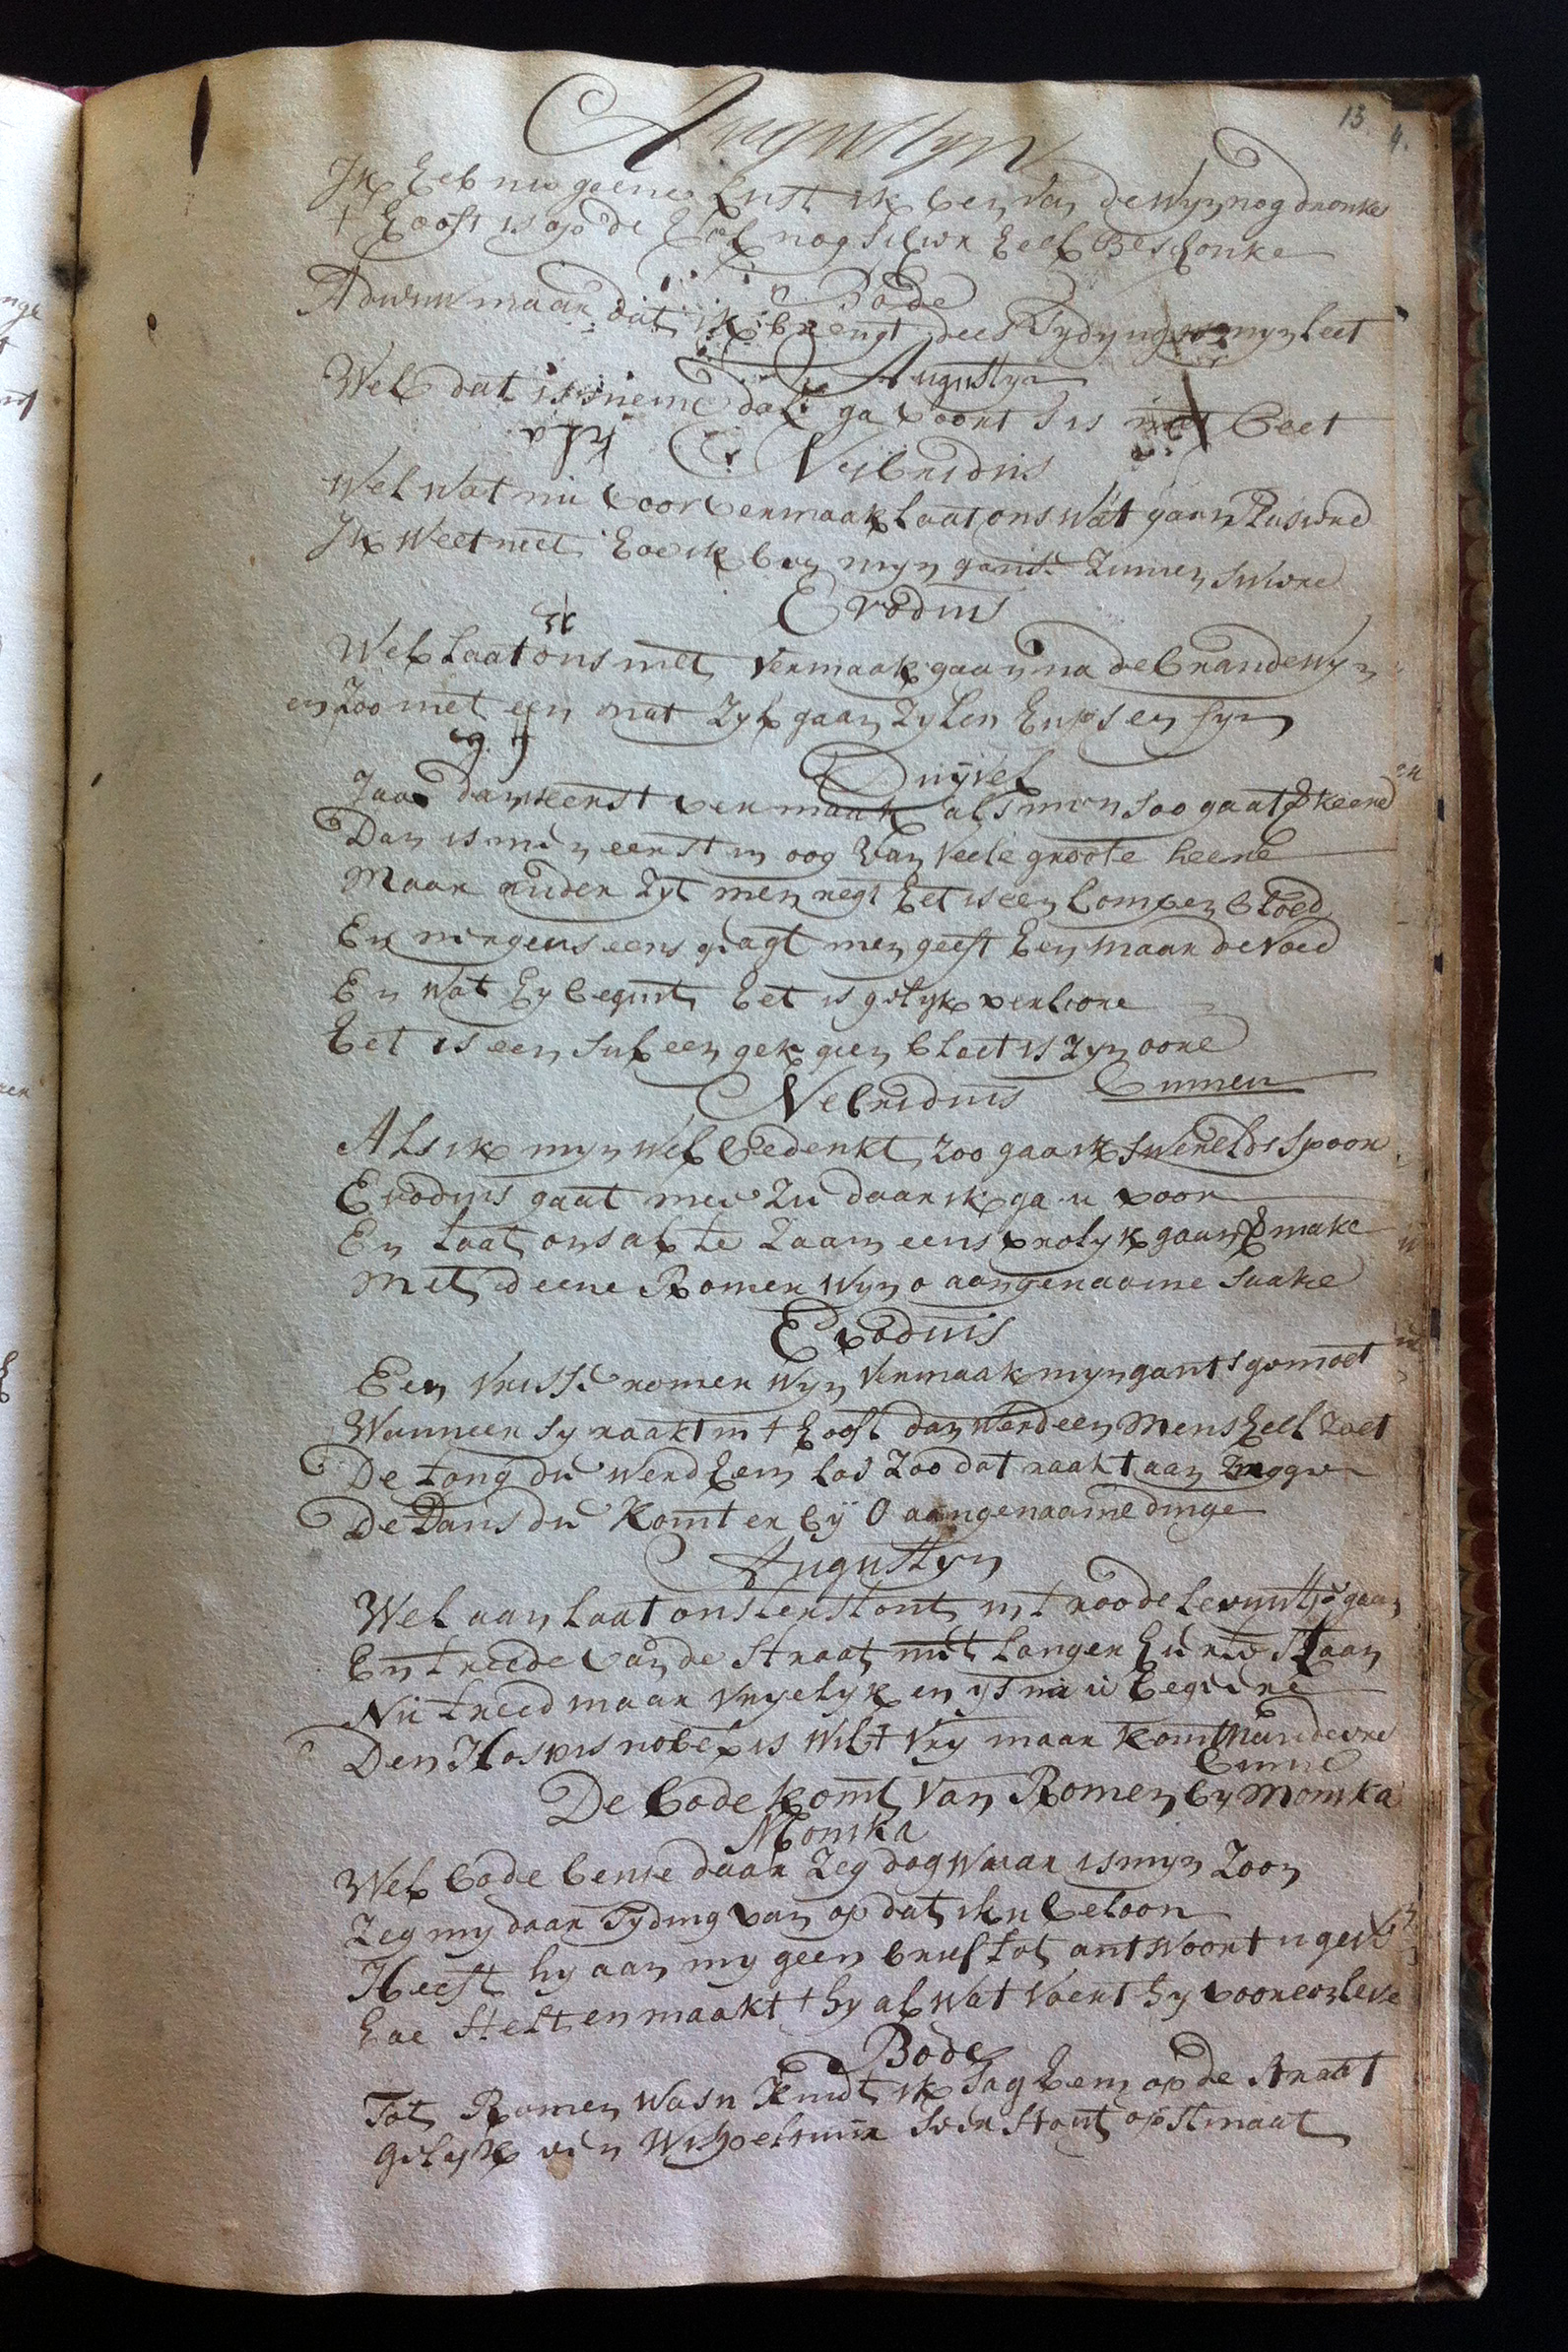 13
4.
Augustyn
Ik heb nu geene lust ik ben van de wyn nog dronke
t hooft is op de hol nog heel beschonke
Bode
maar dat ik brengt dees tydyng myn leet
Augustyn
Wel dat is niemendal ga voort beet
Nebridius
Wel wat nu voor vermaak laat ons wat gaan
Ik weet niet hoe ik ben myn gants
Evodius
ik
Wel laat ons met vermaak gaan na de brandewyn
en zoo met een nat zyl gaan zylen en fyn
Duÿvel
Jaa dan eerst vermaak als men soo gaat
Dan is men eerst in oog van veele groote heere
Maar ander zyt men regt het is een lompen bloed
En nergens eens geagt men geeft hen maar de voed
En wat hy begint het is gelyk verlore
Het is een sul een gek geen bloet is zyn oore
binnen
Nebridius
Als ik myn wel bedenkt zoo gaa ik swerelds spoor
Evodius gaat mee zie daar ik ga u voor
En laat ons al te zaam eens vrolyk gaan make
Met eene Romer wyn o aangenaame saake
Evodius
Een vrisse romer wyn vermaak myn gants gemoet
Wanneer sy raakt in t hooft dan werd een mens heel zoet
De tong die werd hem los zoo dat raakt aan
De Dans die komt er bÿ O aangenaame dinge
Augustyn
Wel aan laat ons terstont in t roode gaan
En treede van de straat niet langer hier te staan
Nu treed maar vryelyk en na u
Den Hospis nobel is wilt vry maar
binne
De bode komt van Romen by Monika
Monika
Wel bode benje daar zeg dog waar is myn zoon
Zeg my daar tyding van op dat ik u beloon
Heeft hy aan my geen brief tot antwoort u geve
hoe stelt en maakt t hy al wat voert hy voor een leve
Bode
Tot Romen was u kindt ik sag hem op de straat
gelyk een stont op